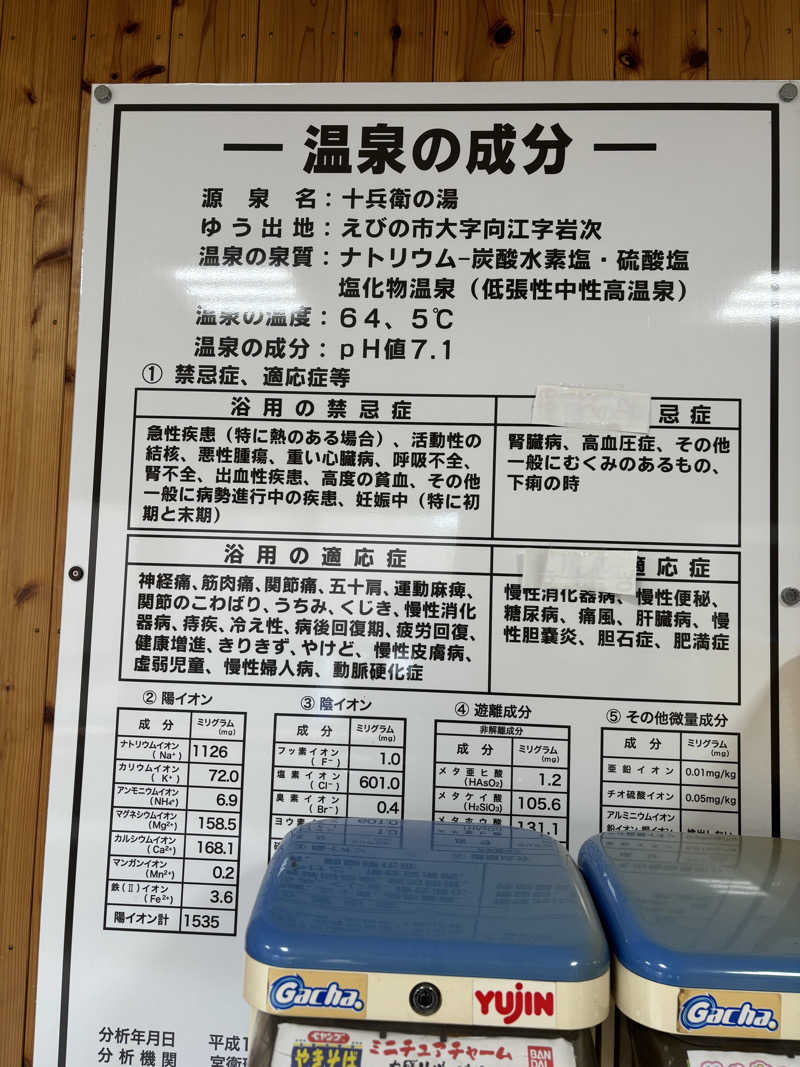 温泉の成分
源泉名：十兵衛の湯
ゆう出地：えびの市大字向江字岩次
温泉の泉質：ナトリウム−炭酸水素塩・硫酸塩
塩化物温泉（低張性中性高温泉）
温泉の温度：６４、５℃
温泉の成分：ｐＨ値７.１
① 禁忌症、適応症等
浴用の禁忌症
急性疾患（特に熱のある場合）、活動性の
結核、悪性腫瘍、重い心臓病、呼吸不全、
腎不全、出血性疾患、高度の貧血、その他
一般に病勢進行中の疾患、妊娠中（特に初
期と末期）
忌症
腎臓病、高血圧症、その他
一般にむくみのあるもの、
下痢の時
浴用の適応症
神経痛、筋肉痛、関節痛、五十肩、運動麻痺、
関節のこわばり、うちみ、くじき、慢性消化
器病、痔疾、冷え性、病後回復期、疲労回復、
健康増進、きりきず、やけど、慢性皮膚病、
虚弱児童、慢性婦人病、動脈硬化症
適応症
慢性消化器病、慢性便秘、
糖尿病、痛風、肝臓病、慢
性胆嚢炎、胆石症、肥満症
② 陽イオン
成分 ミリグラム(mg)
ナトリウムイオン(Na⁺) 1126
カリウムイオン(K⁺) 72.0
アンモニウムイオン(NH₄⁺) 6.9
マグネシウムイオン(Mg²⁺) 158.5
カルシウムイオン(Ca²⁺) 168.1
マンガンイオン(Mn²⁺) 0.2
鉄(Ⅱ)イオン(Fe²⁺) 3.6
陽イオン計 1535
③ 陰イオン
成分 ミリグラム(mg)
フッ素イオン(F⁻) 1.0
塩素イオン(Cl⁻) 601.0
臭素イオン(Br⁻) 0.4
ヨウ素
④ 遊離成分
非解離成分
成分 ミリグラム(mg)
メタ亜ヒ酸(HAsO₂) 1.2
メタケイ酸(H₂SiO₃) 105.6
メタホウ酸 131.1
⑤ その他微量成分
成分 ミリグラム(mg)
亜鉛イオン 0.01mg/kg
チオ硫酸イオン 0.05mg/kg
アルミニウムイオン
分析年月日 平成1
分析機関 宮衛
Gacha.
YUJIN
Gacha.
ペヤング
やきそば
ミニチュアチャーム
BANDAI